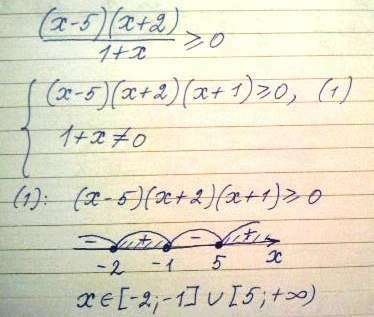 (x-5)(x+2)/1+x ≥ 0
{ (x-5)(x+2)(x+1) ≥ 0, (1)
1+x ≠ 0
(1): (x-5)(x+2)(x+1) ≥ 0
- + - +
-2 -1 5 x
x ∈ [-2; -1] ∪ [5; +∞)